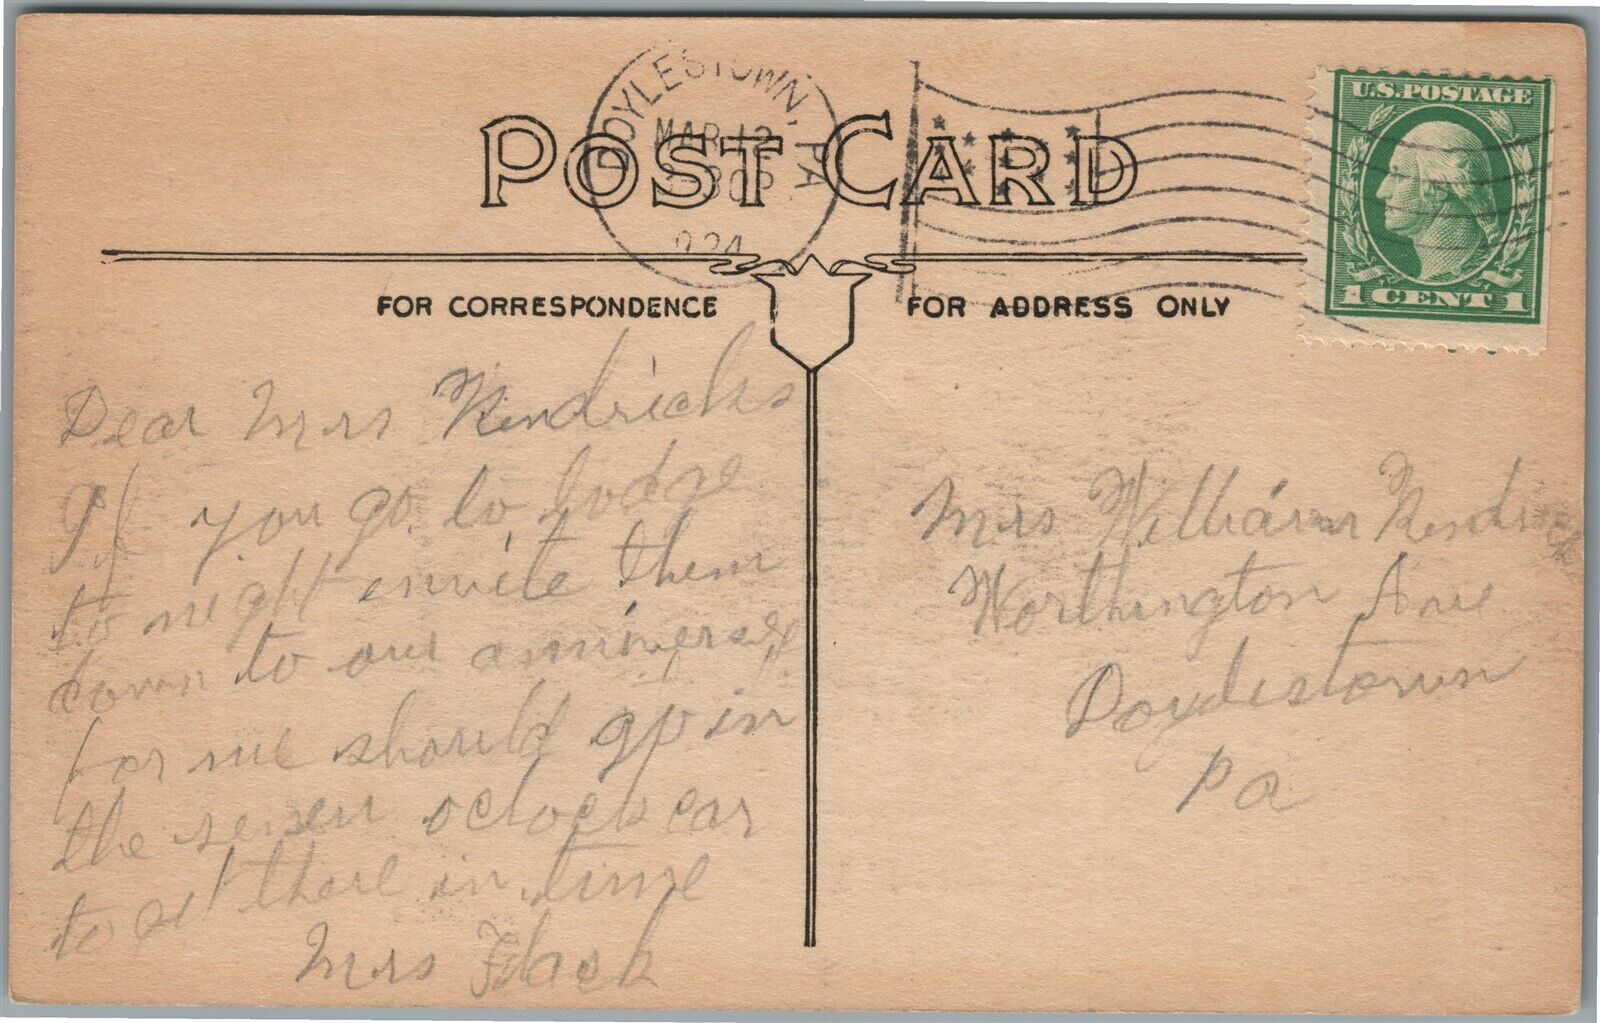 DOYLESTOWN, PA
MAR 12
30P
924
POST CARD
U.S. POSTAGE
1 CENT 1
FOR CORRESPONDENCE
FOR ADDRESS ONLY
Dear Mrs Kendricks
If you go to lodge
to night envite them
down to our anniversey
for we should go in
the seven oclock car
to get there in time
Mrs Flack
Mrs William Kendrick
Worthington Ave
Doylestown
Pa